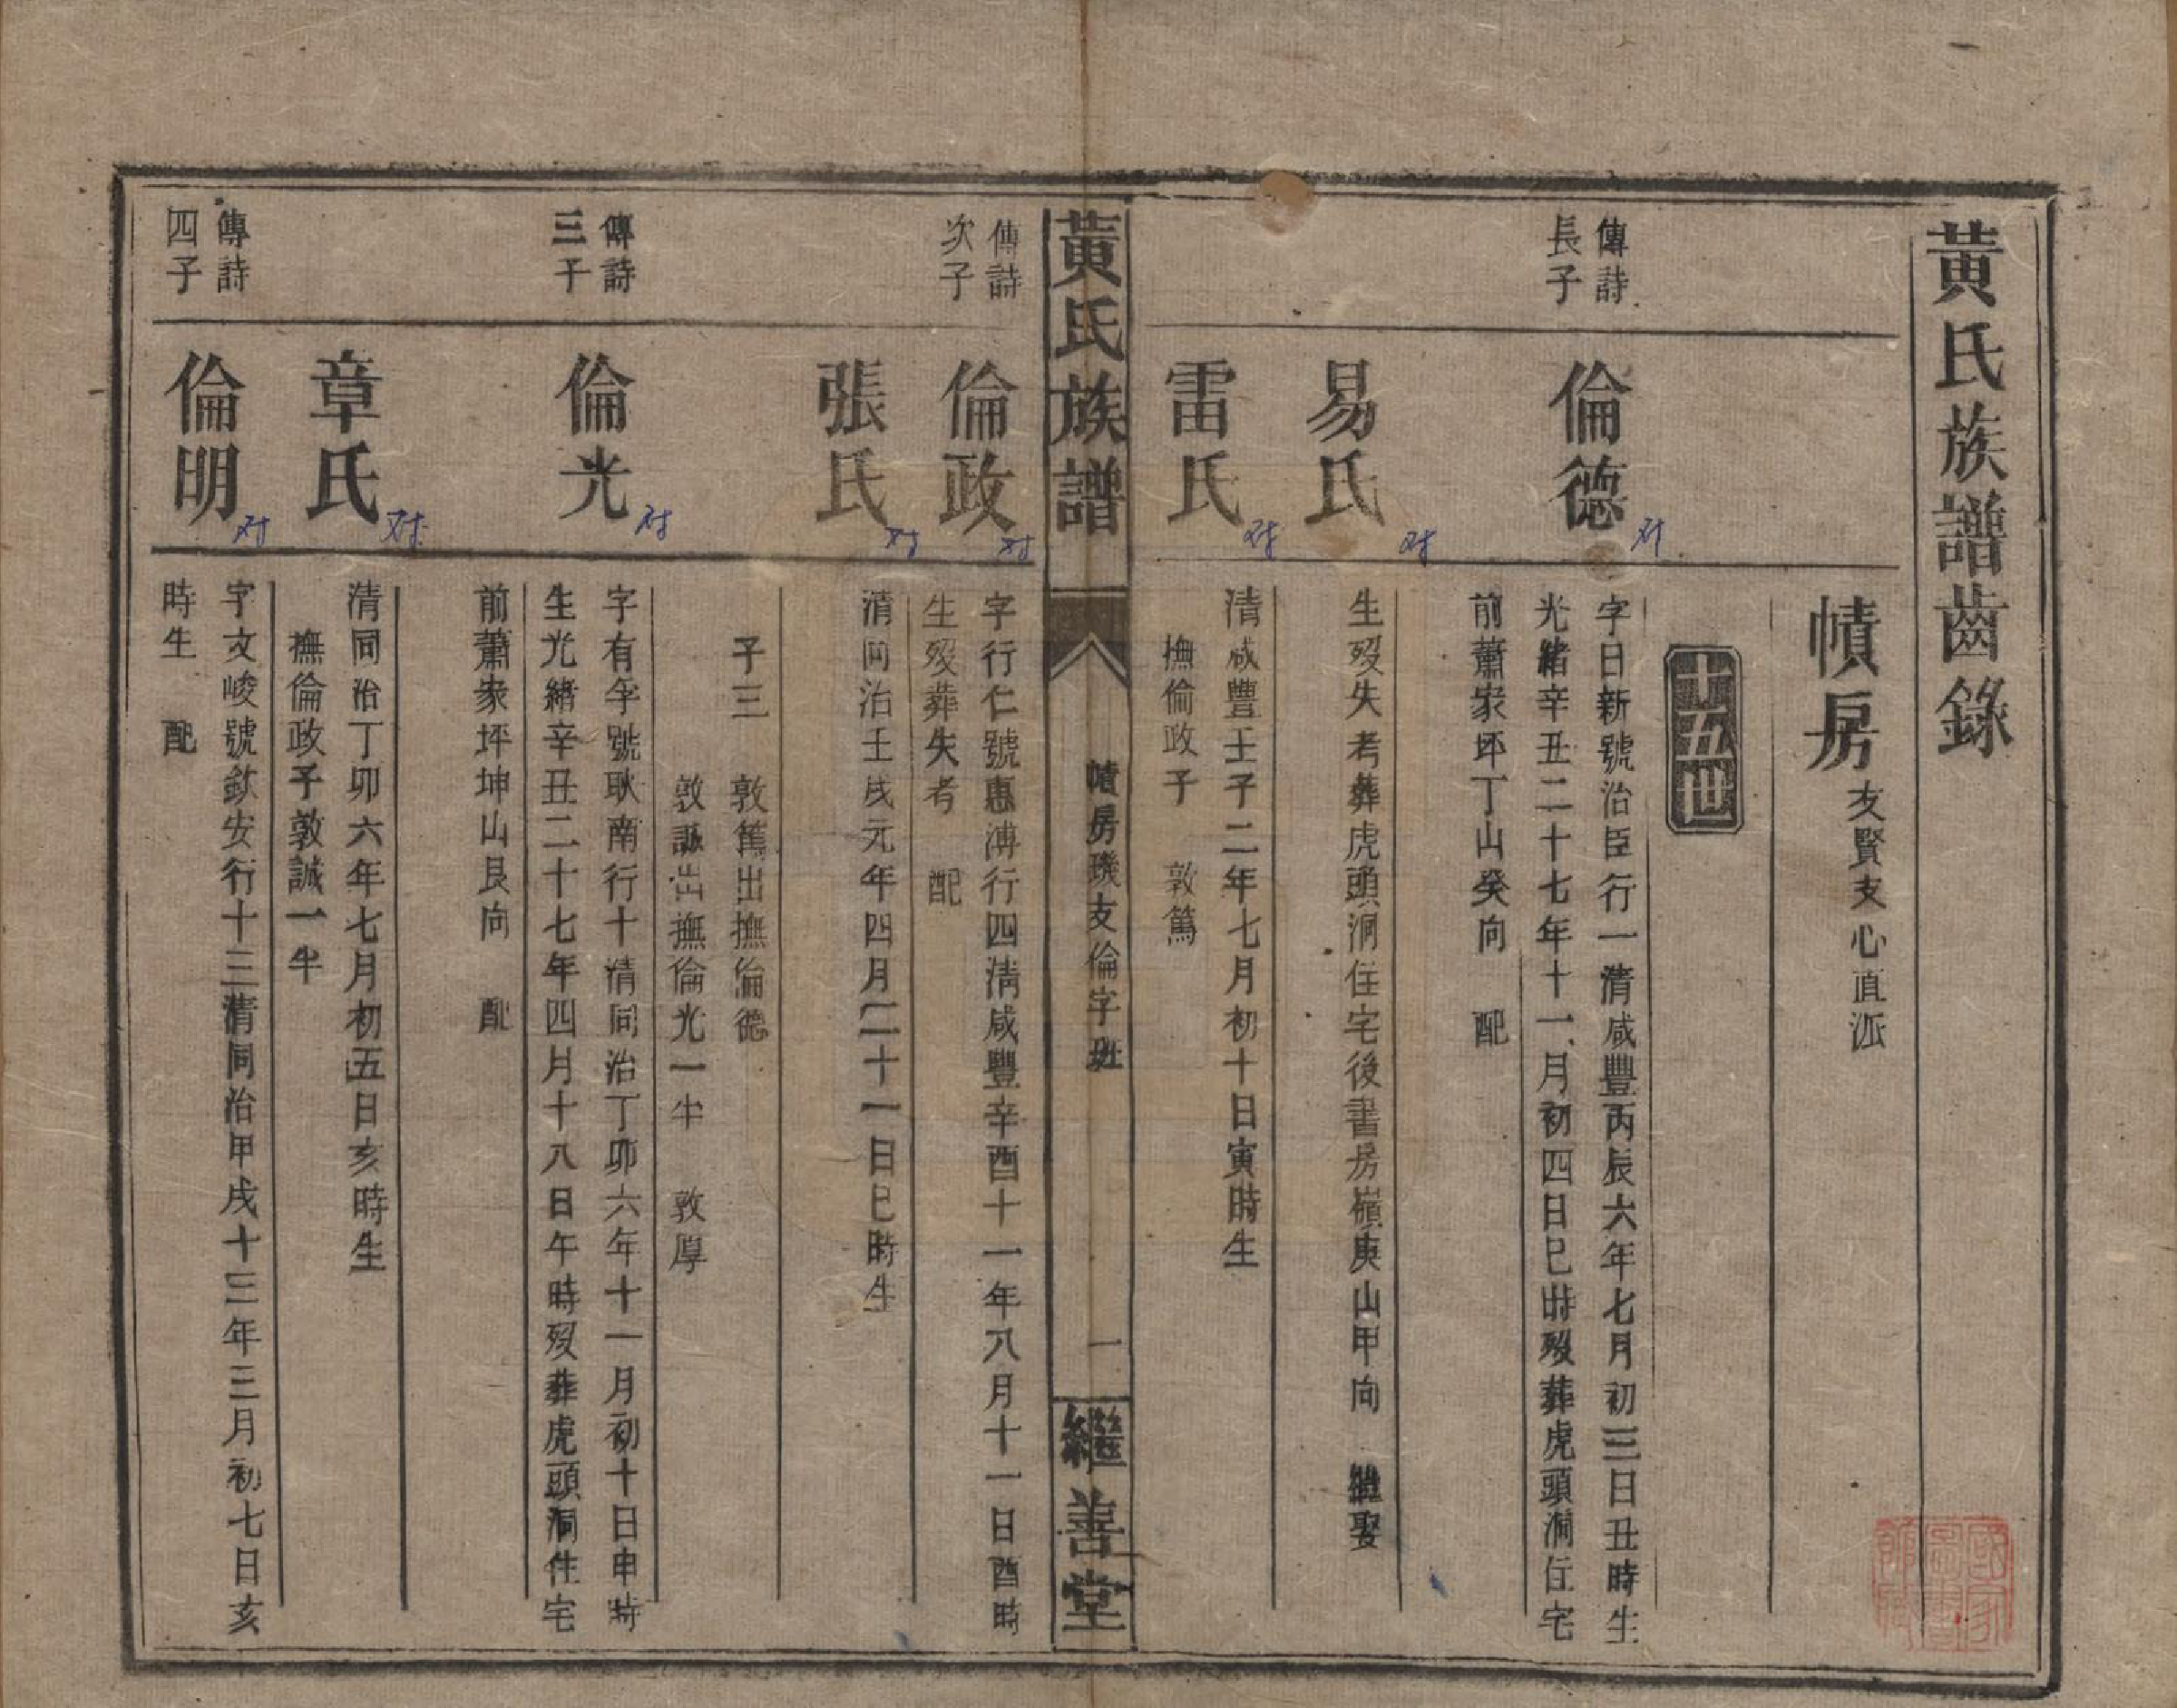 黃氏族譜齒錄
幘房
友賢支心直派
十五世
傳詩
長子
倫德
字日新號治臣行一清咸豐丙辰六年七月初三日丑時生
光緒辛丑二十七年十一月初四日巳時殁葬虎頭洞住宅
前蕭家坪丁山癸向 配
易氏
生殁失考葬虎頭洞住宅後書房嶺庚山甲向 繼娶
雷氏
清咸豐壬子二年七月初十日寅時生
撫倫政子 敦篤
黃氏族譜
幘房璣支倫字班
一
繼善堂
傳詩
次子
倫政
字行仁號惠溥行四清咸豐辛酉十一年八月十一日酉時
生殁葬失考 配
張氏
清同治壬戌元年四月二十一日巳時生
子三 敦篤出撫倫德
敦誠出撫倫光一半 敦厚
傳詩
三子
倫光
字有孚號耿南行十清同治丁卯六年十一月初十日申時
生光緒辛丑二十七年四月十八日午時殁葬虎頭洞住宅
前蕭家坪坤山艮向 配
章氏
清同治丁卯六年七月初五日亥時生
撫倫政子敦誠一半
傳詩
四子
倫明
字文峻號欽安行十三清同治甲戌十三年三月初七日亥
時生 配
对
对
对
对
对
对
对
对